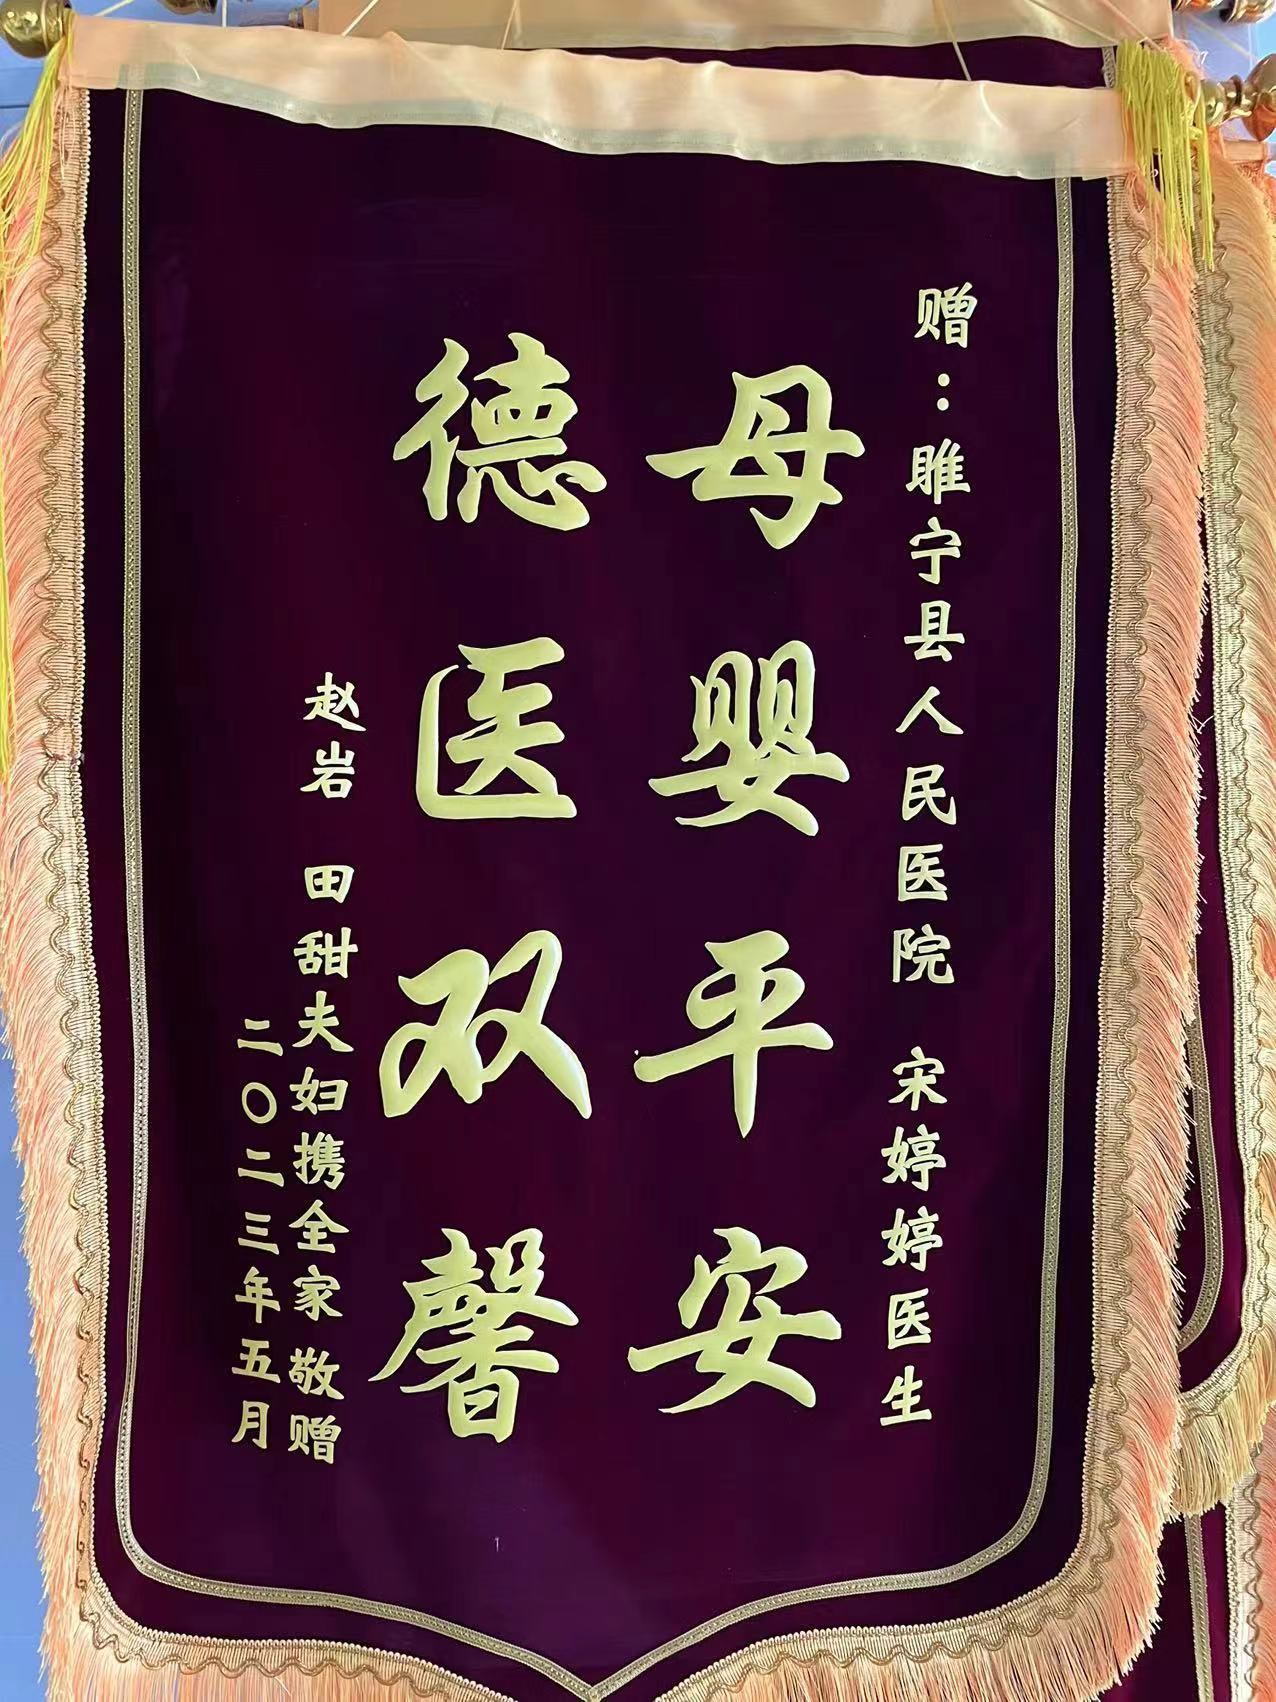 赠：睢宁县人民医院 宋婷婷医生
母婴平安
德医双馨
赵岩 田甜夫妇携全家敬赠
二〇二三年五月